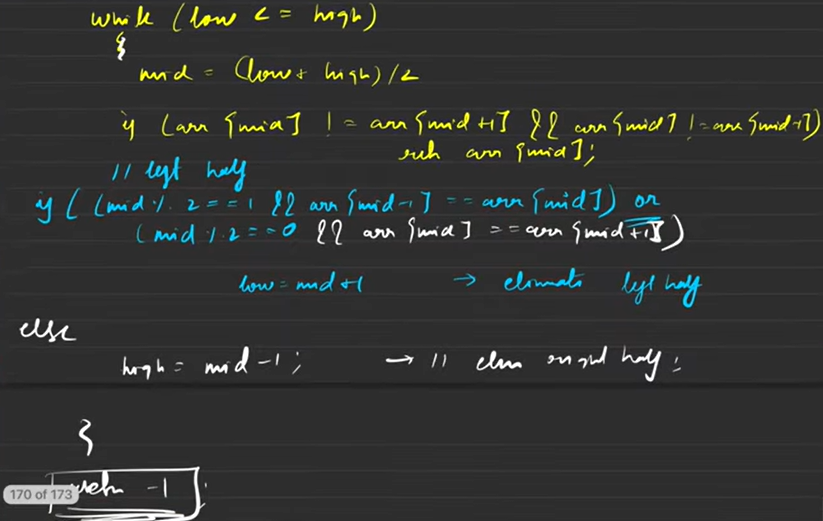 while (low <= high)
{
mid = (low + high)/2
if (arr[mid] != arr[mid+1] && arr[mid] != arr[mid-1])
retn arr[mid];
// left half
if ( (mid % 2 == 1 && arr[mid-1] == arr[mid]) or
(mid % 2 == 0 && arr[mid] == arr[mid+1]) )
low = mid+1 → eliminate left half
else
high = mid-1; → // elim right half;
}
return -1;
170 of 173